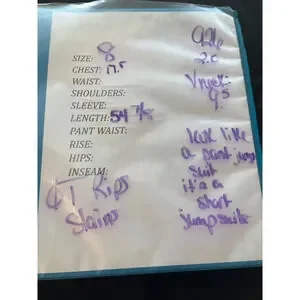 SIZE: 8
CHEST: 17.5
WAIST:
SHOULDERS:
SLEEVE:
LENGTH: 54
PANT WAIST:
RISE:
HIPS:
INSEAM:
Rips
Stains
926
2.0
V neck:
9.5
look like
a pant jump
suit
it's a
short
jumpsuits